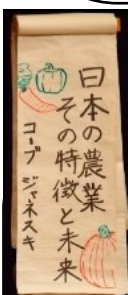 日本の農業
その特徴と未来
コーブ ジャネスキ